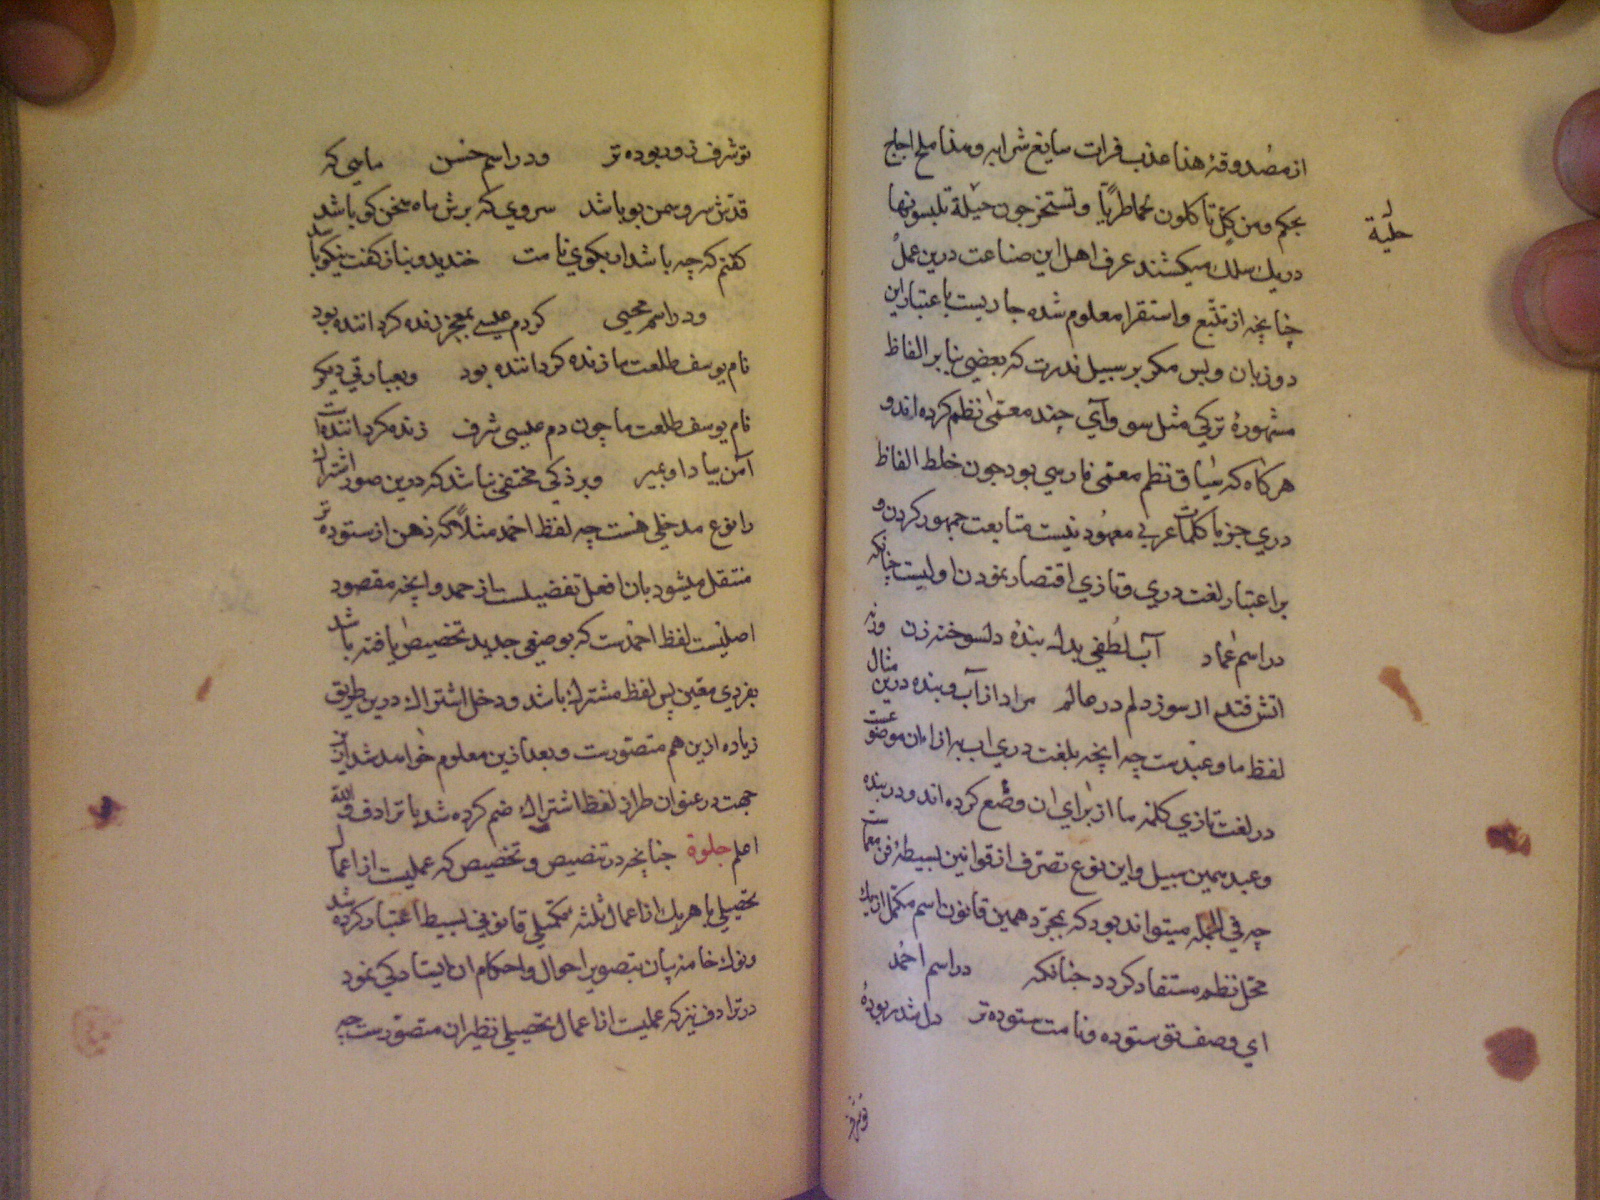 از مصدوقهٔ هذا عذب فرات سایغ شرابه و هذا ملح اجاج
بحکم ومن کل تأکلون لحما طریّا وتستخرجون حیلة تلبسونها
حلیة
در یک سلک میکشند عرف اهل این صناعت درین عمل
چنانچه از تتبع و استقرا معلوم شده جاریست باعتبار این
دو زبان و بس مکر بر سبیل ندرت که بعضی بنا بر الفاظ
مشهورهٔ ترکی مثل سو و آی چند معمّی نظم کرده اند و
هرکاه که سیاق نظم معمی فارسی بود چون خلط الفاظ
دری جز با کلمات عربی معهود نیست متابعت جمهور کردن و
بر اعتبار لغت دری و تازی اقتصار نمودن اولیست چنانکه
در اسم عماد آب لطفی بدل بندهٔ دلسوخته زن ورنه
اتش فتد از سوز دلم در عالم مراد از آب و بنده درین مثال
لفظ ما و عبدست چه انچه بلغت دری اب به ازاء ان موضوعست
در لغت تازی کلمهٔ ما از برای ان وضع کرده اند و در بنده
و عبد همین سبیل و این نوع تصرف از قوانین بسیطهٔ فن معماست
چه فی الجمله میتواند بود که بمجرد همین قانون اسم مکمل از یک
محل نظم مستفاد کردد چنانکه در اسم احمد
ای وصف تو ستوده و نامت ستوده تر دل شد ربودهٔ
تو شرف
تو شرف زود بوده تر و در اسم حسن ماهی که
قدش سرو سمن بو باشد سروی که برش ماه سخن کو باشد
کفتم که چه باشد ار بکوی نامت خندید و بناز کفت نیکو باشد
و در اسم محیی کردم عیسی بمعجز زنده کرداننده بود
نام یوسف طلعت ما زنده کرداننده بود و بعبارتی دیکر
نام یوسف طلعت ما چون دم عیسی شرف زنده کرداننده است
آمن بیا دا و بمیر و بر ذکی مختفی نباشد که درین صور اشتراک
را نوع مدخلی هست چه لفظ احمد مثلاً که ذهن از ستوده تر
منتقل میشود بان افعل تفضیلست از حمد و انچه مقصود
اصلیست لفظ احمدست که بوضعی جدید تخصیص یافته باشد
بفردی معین پس لفظ مشترک باشد و دخل اشتراک درین طریق
زیاده ازین هم متصورست و بعد ازین معلوم خواهد شد ازین
جهت در عنوان طراز لفظ اشتراک ضم کرده شد با ترادف والله
اعلم جلوة چنانچه در تنصیص و تخصیص که عملیست از اعمال
تحصیلی با هر یک از اعمال ثلثه تکمیلی قانونی بسیط اعتبار کرده شد
و نوک خامه بیان بتصویر احوال و احکام ان ایستادکی نمود
در ترادف نیز که عملیست از اعمال تحصیلی نظیر ان متصورست چه